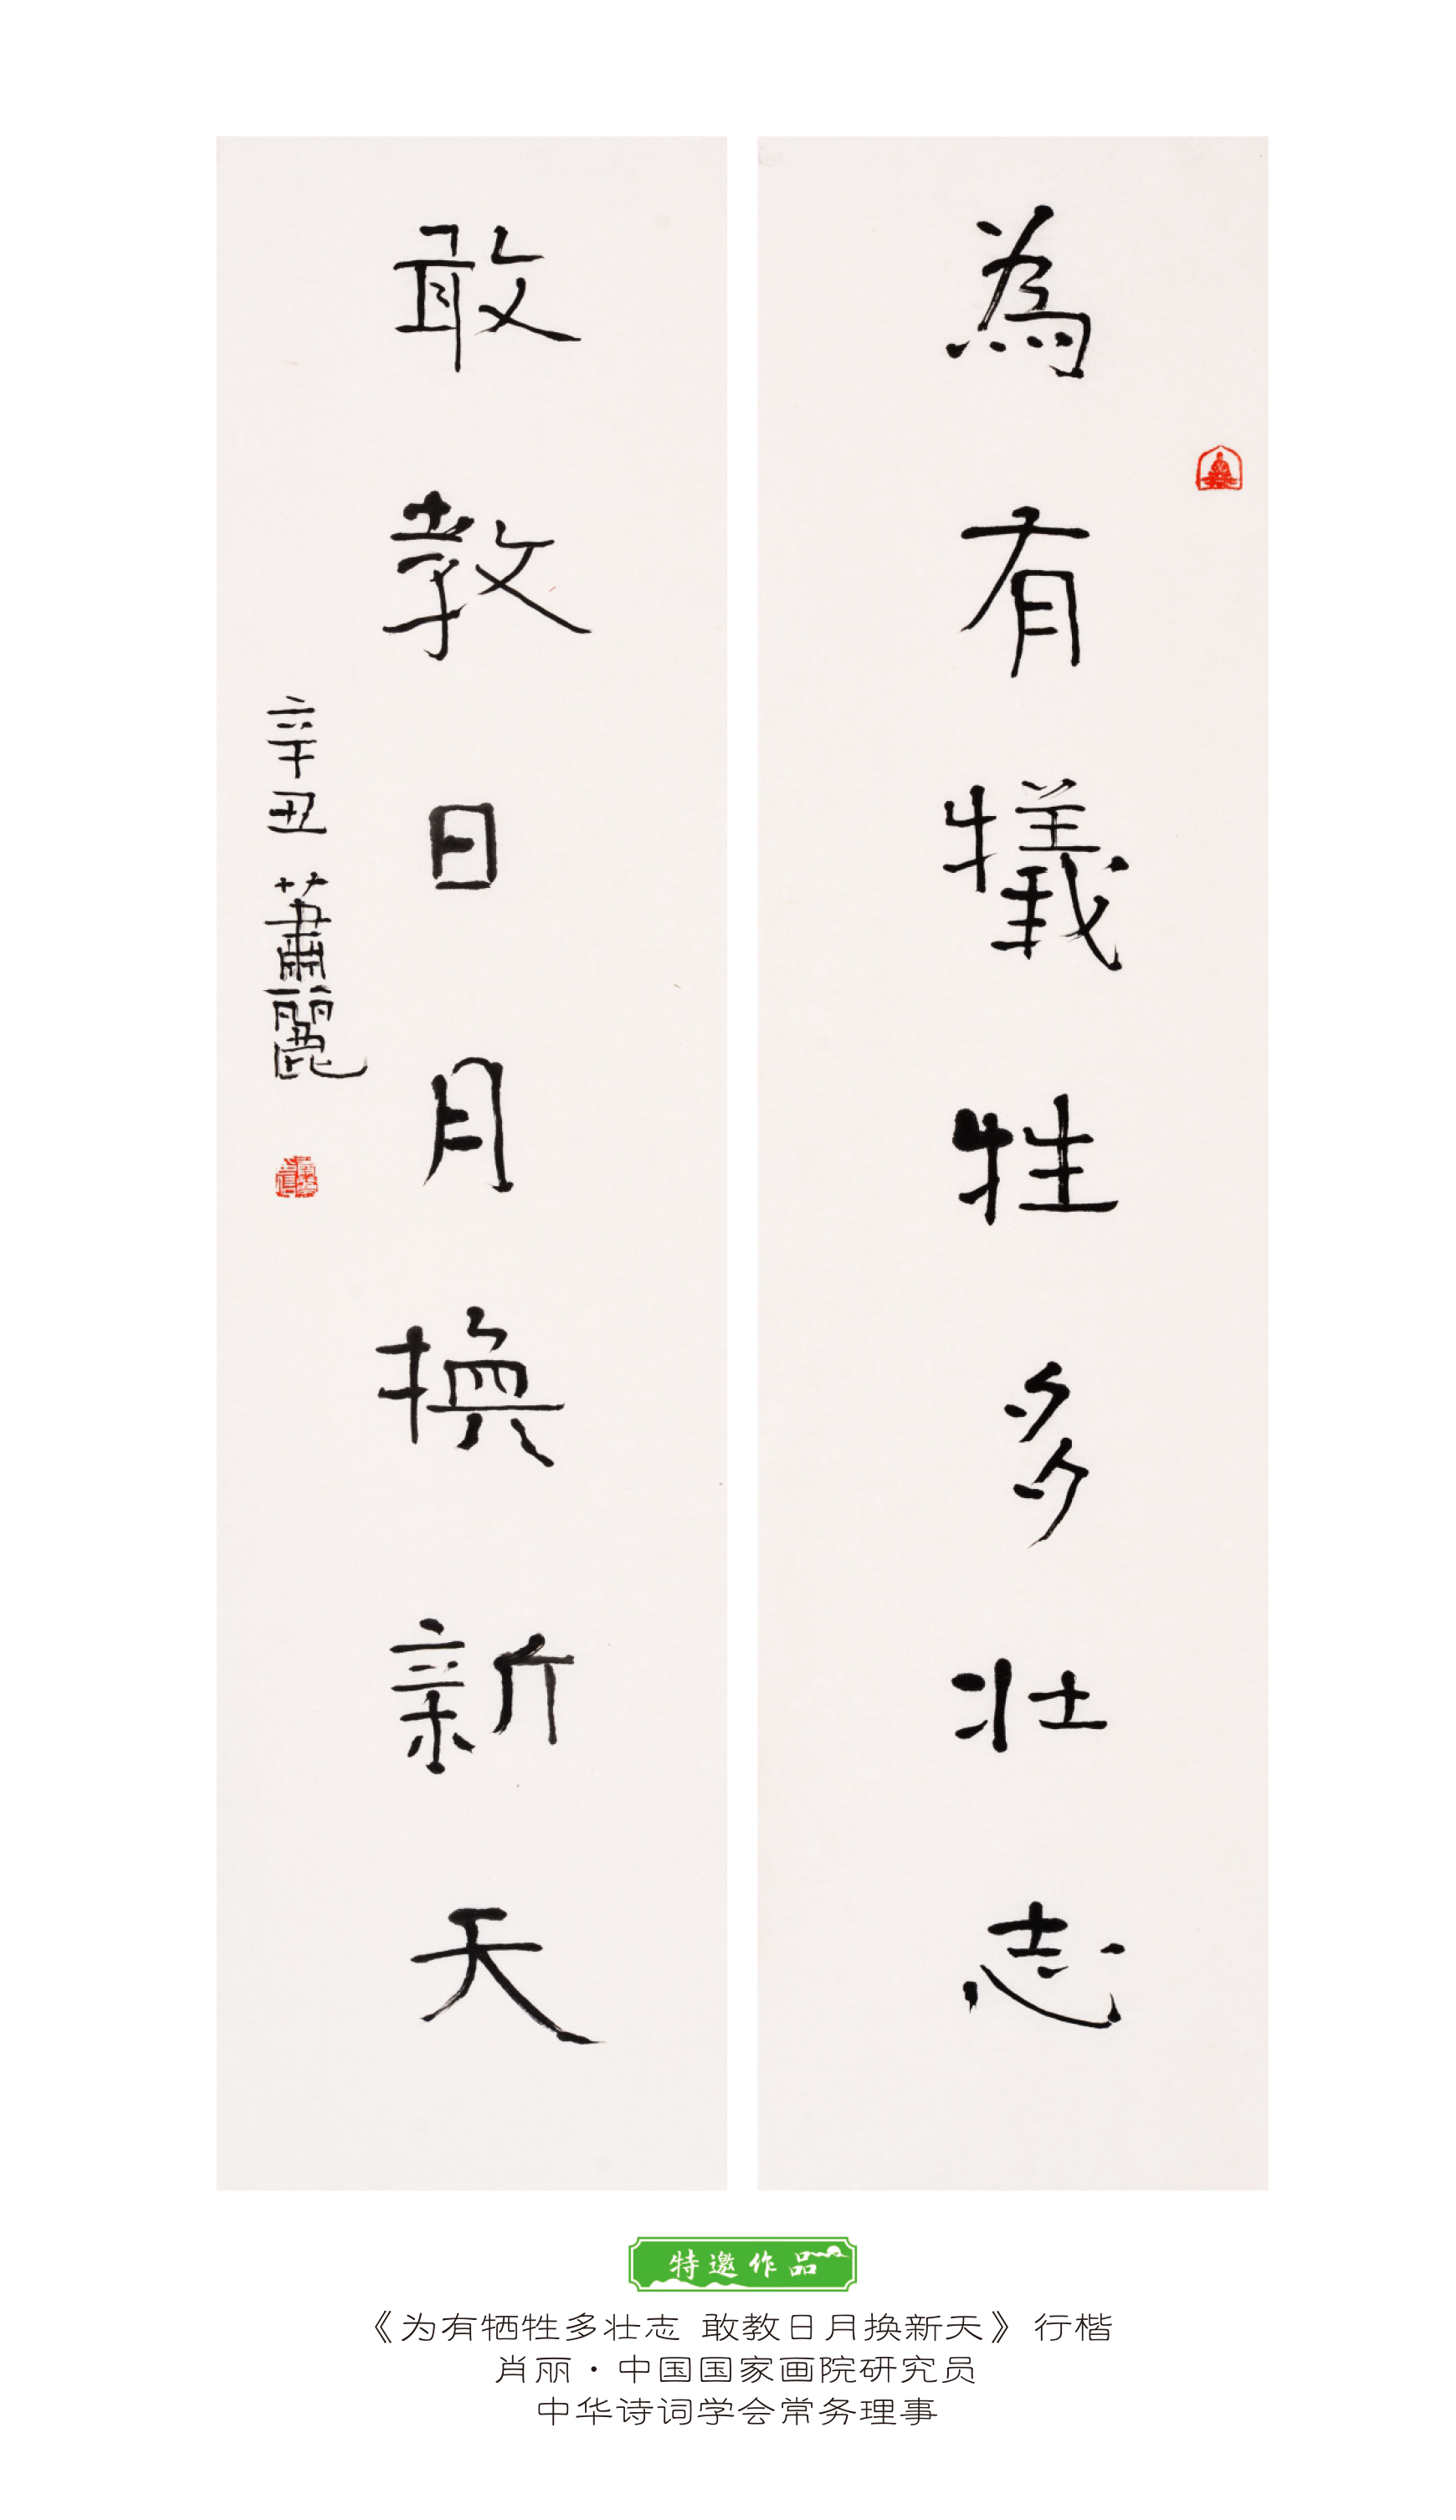 為有犧牲多壯志
敢教日月換新天
辛丑 蕭麗
特邀作品
《为有牺牲多壮志 敢教日月换新天》 行楷
肖丽·中国国家画院研究员
中华诗词学会常务理事